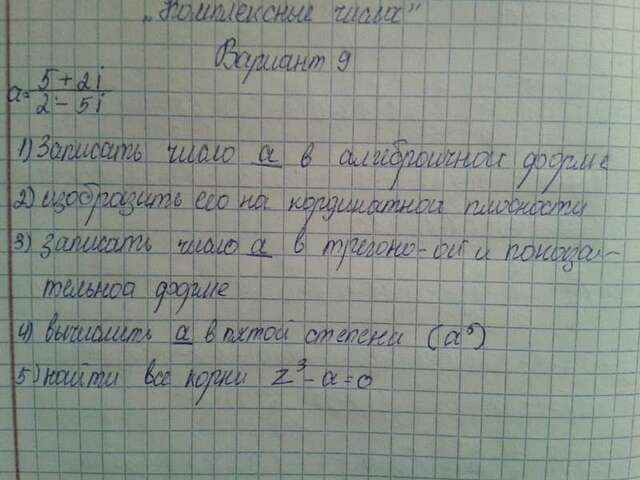 „Комплексные числа"
Вариант 9
a = 5 + 2i / 2 - 5i
1) Записать число a в алгиброичной форме
2) изобразить его на кординатной плоскости
3) Записать число a в тригоно-ой и показа-
тельноа форме
4) вычислить a в пятой степени (a⁵)
5) найти все корни z³ - a = 0